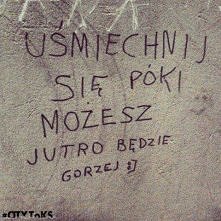 UŚMIECHNIJ
SIĘ PÓKI
MOŻESZ
JUTRO BĘDZIE
GORZEJ :]